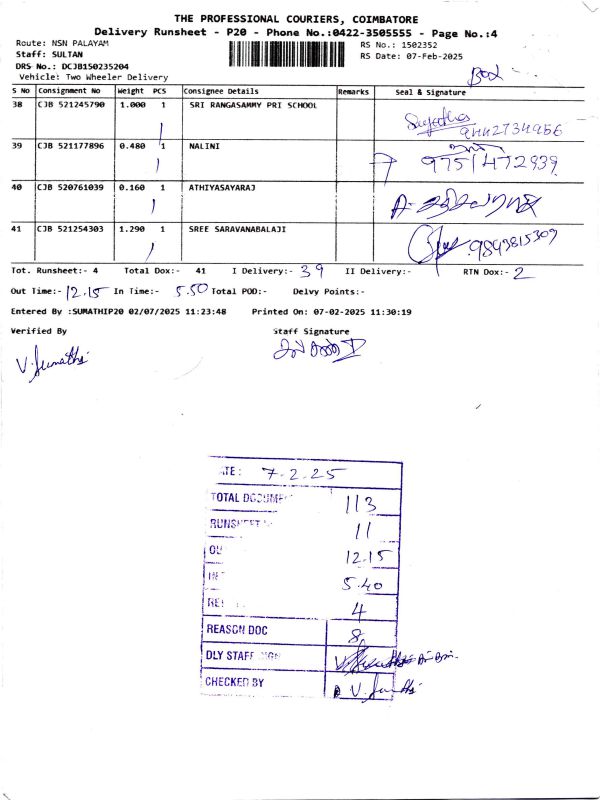 THE PROFESSIONAL COURIERS, COIMBATORE
Delivery Runsheet - P20 - Phone No.:0422-3505555 - Page No.:4
Route: NSN PALAYAM RS No.: 1502352
Staff: SULTAN RS Date: 07-Feb-2025
DRS No.: DCJB150235204
Vehicle: Two Wheeler Delivery
Box
S No Consignment No Weight PCS Consignee Details Remarks Seal & Signature
38 CJB 521245790 1.000 1 SRI RANGASAMMY PRI SCHOOL
9442734956
39 CJB 521177896 0.480 1 NALINI
9751472939
40 CJB 520761039 0.160 1 ATHIYASAYARAJ
41 CJB 521254303 1.290 1 SREE SARAVANABALAJI
9843815309
Tot. Runsheet:- 4 Total Dox:- 41 I Delivery:- 39 II Delivery:- RTN Dox:- 2
Out Time:- 12.15 In Time:- 5.50 Total POD:- Delvy Points:-
Entered By :SUMATHIP20 02/07/2025 11:23:48 Printed On: 07-02-2025 11:30:19
Verified By Staff Signature
V. Sumathi
ATE: 7.2.25
TOTAL DOCUME 113
RUNSHEET 11
OU 12.15
IN 5.40
RE 4
REASON DOC 8
DLY STAFF SIGN
CHECKED BY V. Sumathi